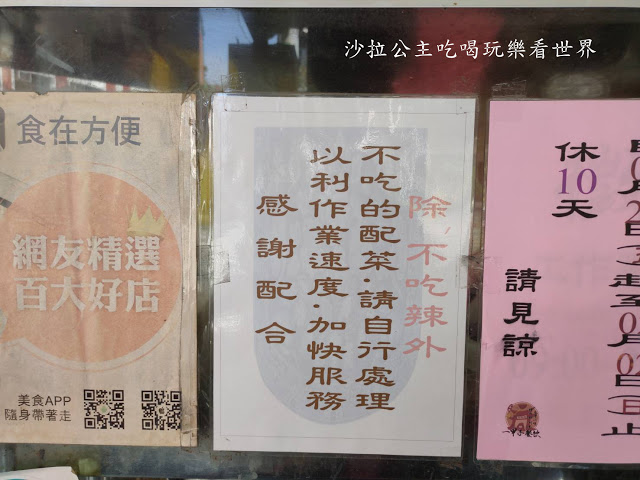 沙拉公主吃喝玩樂看世界
食在方便
網友精選
百大好店
美食APP
隨身帶著走
除,不吃辣外
不吃的配菜.請自行處理
以利作業速度.加快服務
感謝配合
休10天
請見諒